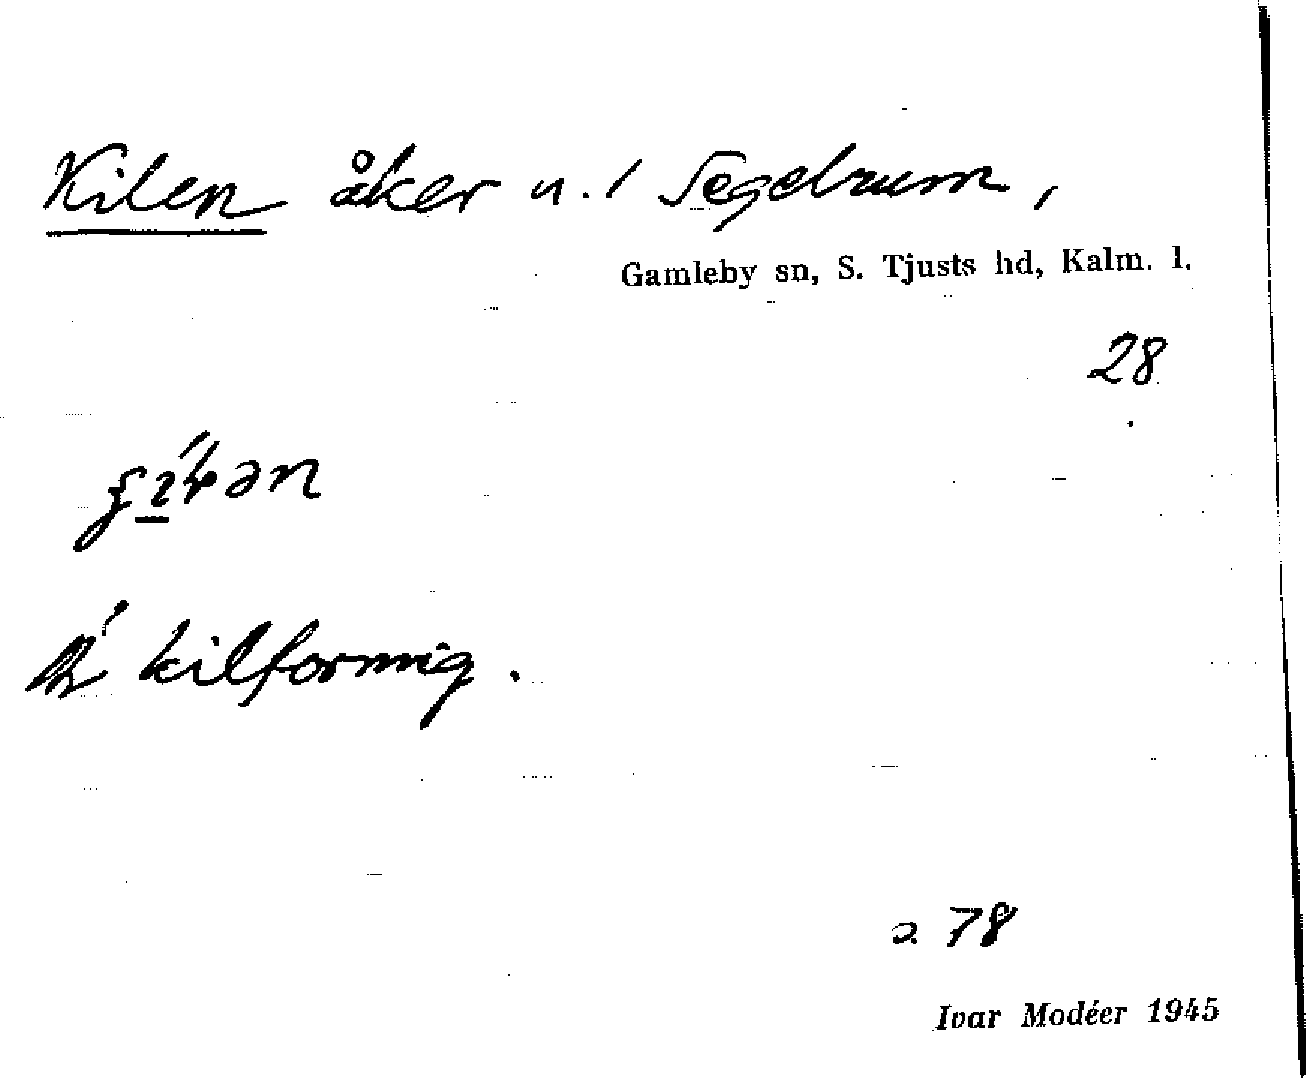 Kilen åker u. / Segelrum,
Gamleby sn, S. Tjusts hd, Kalm. l.
28
kilformig.
a 78
Ivar Modéer 1945